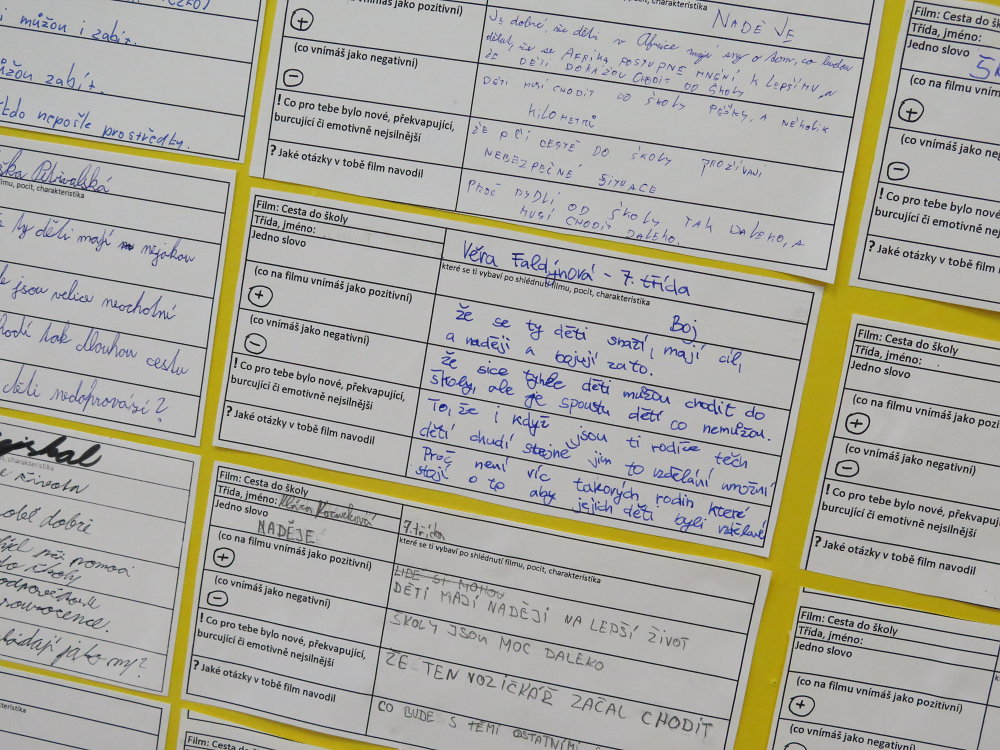 můžou i zabít.
můžou zabít.
nepošle prostředky.
(co na filmu vnímáš jako pozitivní)
+
(co vnímáš jako negativní)
−
! Co pro tebe bylo nové, překvapující,
burcující či emotivně nejsilnější
? Jaké otázky v tobě film navodil
NADĚJE
Je dobré, že děti v Africe mají sny o tom, co budou
dělat, že se AFRIKA POSTUPNĚ MNĚNÍ K LEPŠÍMU A
ŽE DĚTI DOKÁŽOU CHODIT DO ŠKOLY
DĚTI MUSÍ CHODIT DO ŠKOLY PĚŠKY, A NĚKOLIK
KILOMETRŮ
ŽE PŘI CESTĚ DO ŠKOLY PROŽÍVAJÍ
NEBEZPEČNÉ SITUACE
PROČ BYDLÍ OD ŠKOLY TAK DALEKO, A
MUSÍ CHODIT DALEKO.
Film: Cesta do školy
Třída, jméno:
Jedno slovo
+
(co vnímáš jako
−
! Co pro tebe bylo
burcující či emotivně
? Jaké otázky v tobě film
filmu, pocit, charakteristika
ty děti mají nějakou
jsou velice neochotní
tak dlouhou cestu
děti nedoprovází?
Film: Cesta do školy
Třída, jméno:
Jedno slovo
(co na filmu vnímáš jako pozitivní)
+
(co vnímáš jako negativní)
−
! Co pro tebe bylo nové, překvapující,
burcující či emotivně nejsilnější
? Jaké otázky v tobě film navodil
Věra Faldýnová - 7. třída
které se ti vybaví po shlédnutí filmu, pocit, charakteristika
Boj
že se ty děti snaží, mají cíl,
a naději a bojují za to.
že sice tyhle děti můžou chodit do
školy, ale je spoustu dětí co nemůžou.
To, že i když jsou ti rodiče těch
dětí chudí stejně jim to vzdělání umožní
Proč není víc takových rodin které
stojí o to aby jejich děti byli vzdělané
Film: Cesta do školy
Třída, jméno:
Jedno slovo
(co na filmu vnímáš jako pozit
+
(co vnímáš jako negativní)
−
! Co pro tebe bylo nové, překvap
burcující či emotivně nejsilnější
? Jaké otázky v tobě film navodil
charakteristika
života
dobré
pomoci
školy
jako my?
Film: Cesta do školy
Třída, jméno:
Jedno slovo
NADĚJE
(co na filmu vnímáš jako pozitivní)
+
(co vnímáš jako negativní)
−
! Co pro tebe bylo nové, překvapující,
burcující či emotivně nejsilnější
? Jaké otázky v tobě film navodil
7. třída
které se ti vybaví po shlédnutí filmu, pocit, charakteristika
LIDÉ SI MOHOU
DĚTI MAJÍ NADĚJI NA LEPŠÍ ŽIVOT
ŠKOLY JSOU MOC DALEKO
ŽE TEN VOZÍČKÁŘ ZAČAL CHODIT
CO BUDE S TĚMI OSTATNÍMI
Film: Cesta do školy
Třída, jméno:
Jedno slovo
(co na filmu vnímáš jako
+
(co vnímáš jako negativní)
Film: Cesta do školy